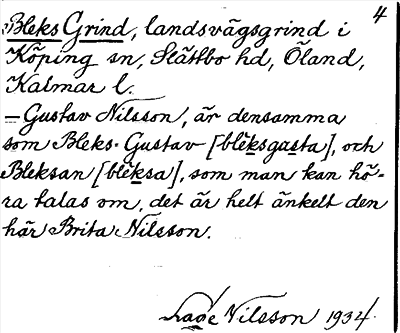 4
Bleks Grind, landsvägsgrind i
Köping sn, Slättbo hd, Öland,
Kalmar l.
— Gustav Nilsson, är densamma
som Bleks-Gustav [blēksgusta], och
Bleksan [blēksa], som man kan hö-
ra talas om, det är helt änkelt den
här Brita Nilsson.
Nilsson 1934.